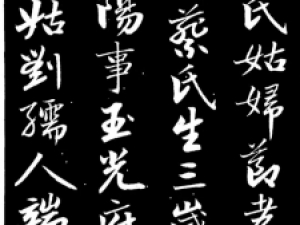 氏姑婦節孝
蔡氏生三歲
陽事玉光府
姑劉孺人端